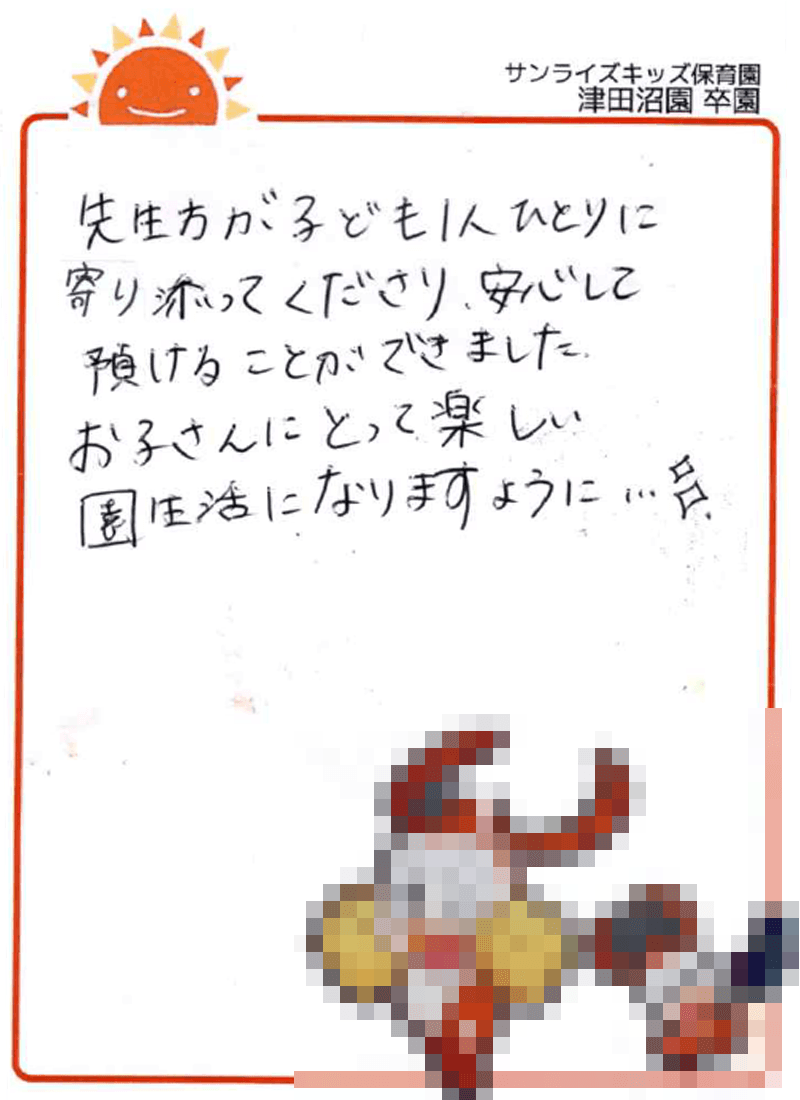 サンライズキッズ保育園
津田沼園 卒園
先生方が子ども1人ひとりに
寄り添ってくださり、安心して
預けることができました。
お子さんにとって楽しい
園生活になりますように…